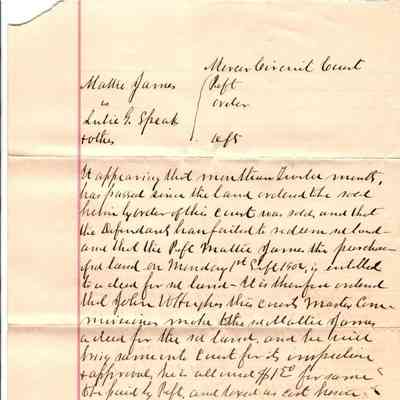 Mercer Circuit Court
Mattie James Plft
vs order
Lulie G. Speak
& others Dfts
It appearing that more than Twelve months
has passed since the land ordered to be sold
herein by order of this court was sold, and that
the Defendants have failed to redeem sd land
and that the Plft Mattie James the purchaser
of sd land on Monday 1st Sept 1902, is entitled
to a deed for sd land - It is therefore ordered
that John W Hughes this courts Master Com-
missioner make to the sd Mattie James
a deed for the sd land, and he will
bring same into court for its inspection
& approval, he is allowed $1 50 for same
to be paid by Plft, and taxed as cost herein